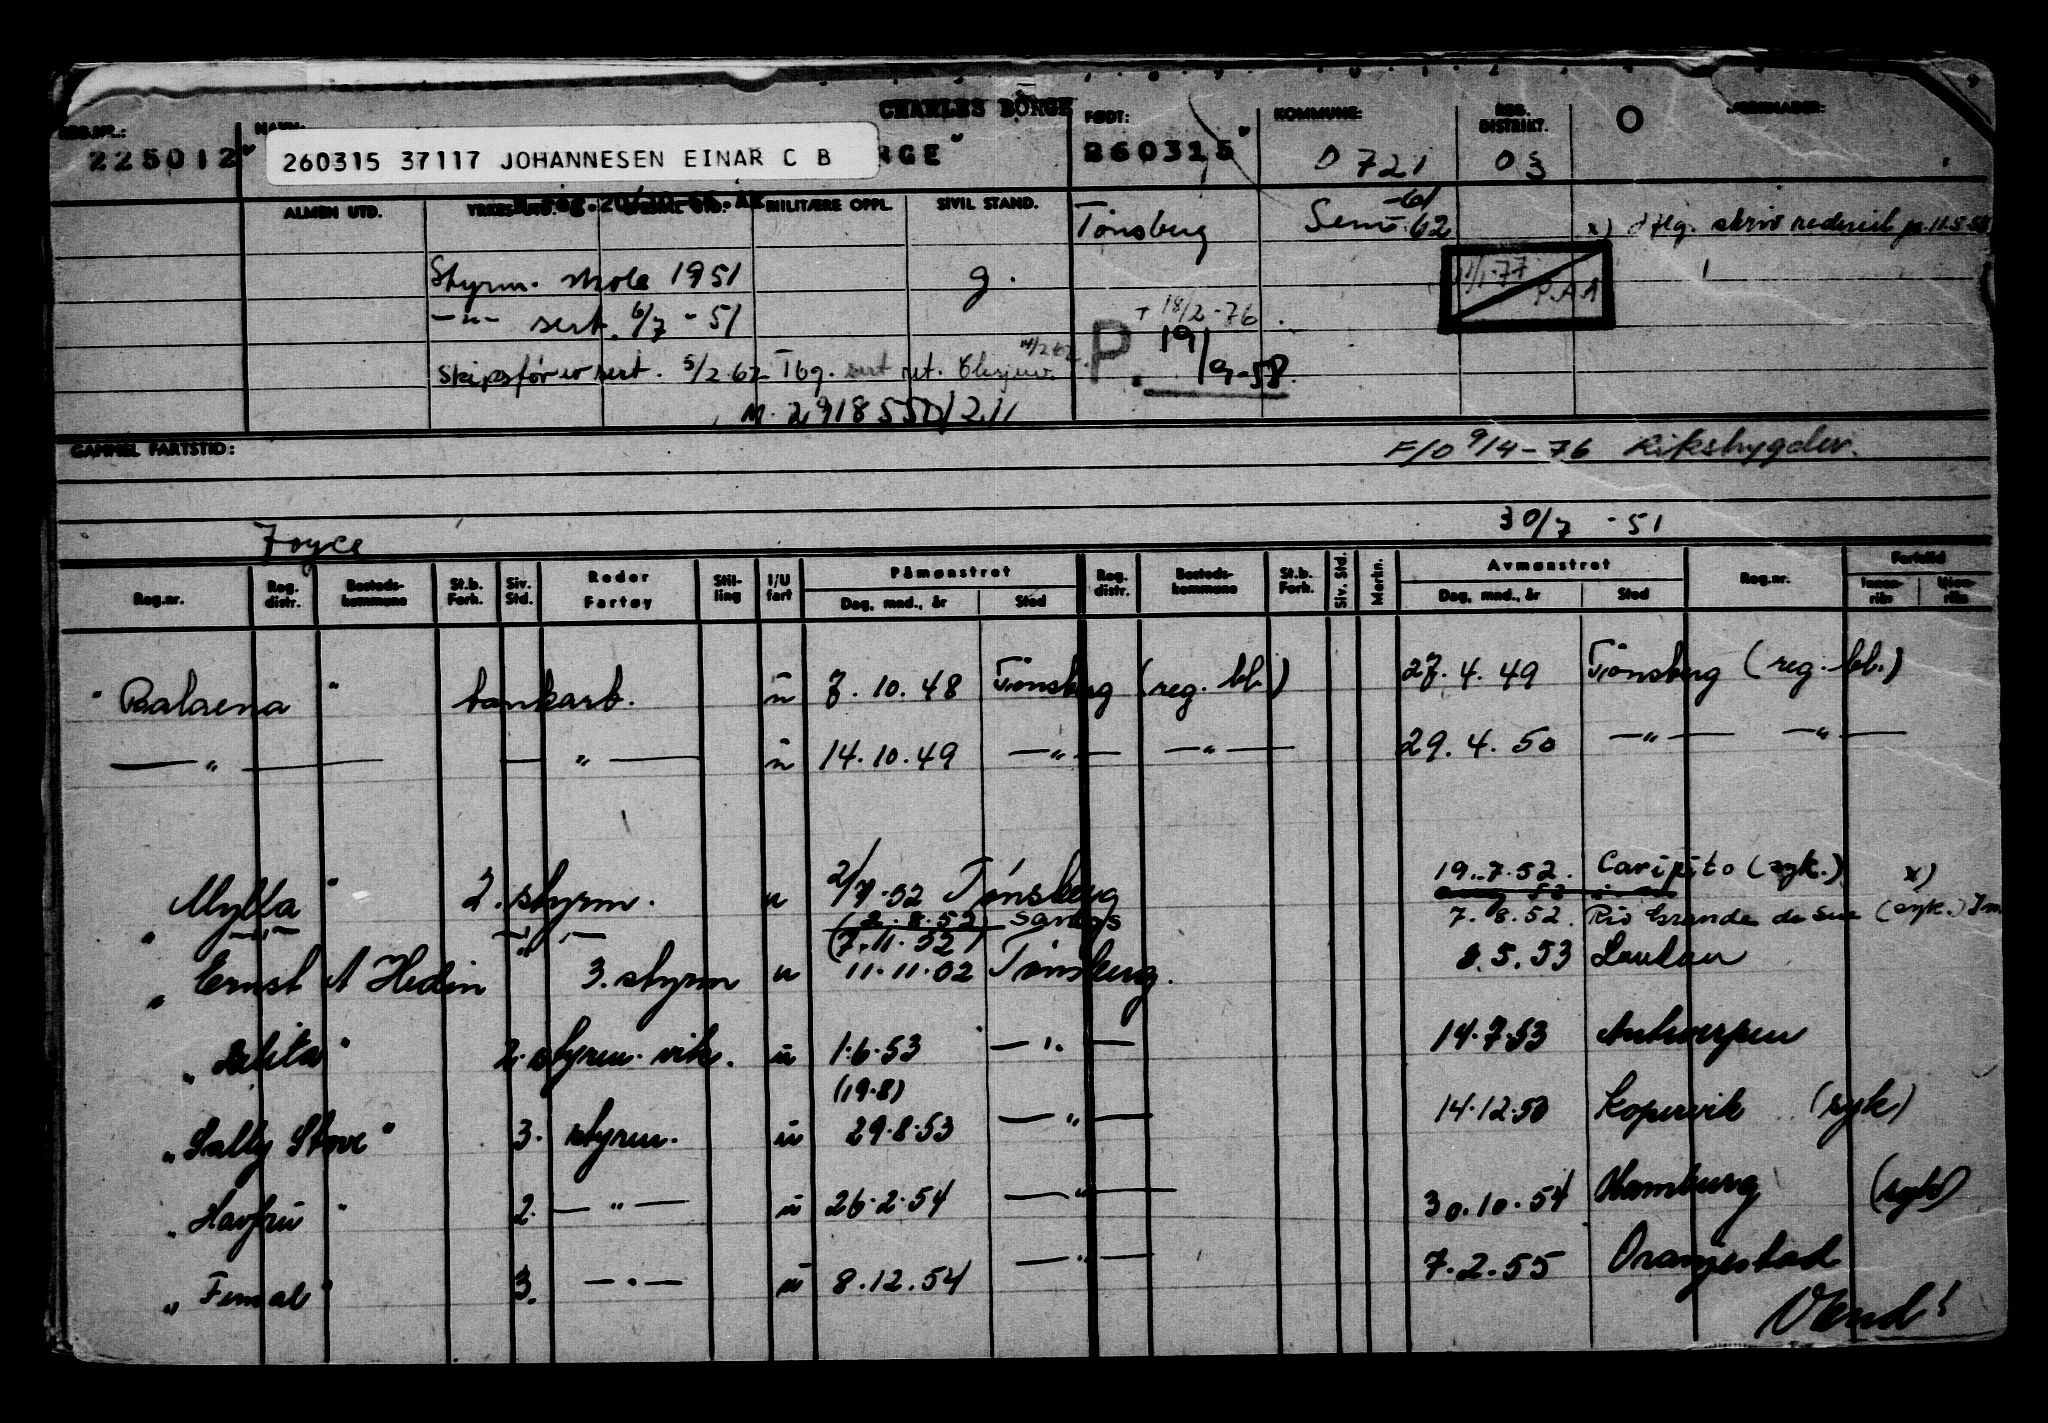 CHARLES BÖRGE
REG.NR.: NAVN: FØDT: KOMMUNE: REG. DISTRIKT. MERKNADER:
225012 260315 37117 JOHANNESEN EINAR C B RGE" 260315 0721 03
ALMEN UTD. MILITÆRE OPPL. SIVIL STAND. Tönsberg Sem -61 -62 x) skriv rederiet 11.5.53
Styrm. skole 1951 g. 11/1-77 P.A.A
-"- sert. 6/7-51 + 18/2-76
Skipsfører sert. 5/2 62 Tbg. P. 19/9-58.
M. 2918550/211
GAMMEL FARTSTID: F/O 9/4-76 Riksbygder.
Joyce 30/7-51
Reg.nr. Reg. distr. Bosteds-kommune St.b. Forh. Siv. Std. Reder Fartøy Stil-ling I/U fart Påmønstret Dag, mnd., år Sted Reg. distr. Bosteds-kommune St.b. Forh. Siv. Std. Merkn. Avmønstret Dag, mnd., år Sted Reg.nr. Fartstid Innen-riks Uten-riks
"Balaena" tankarb. u 7.10.48 Tönsberg (reg. bb.) 27.4.49 Tönsberg (reg. bb.)
—"— —"— u 14.10.49 —"— —"— 29.4.50 —"— —"—
19.7.52. Caripito (syk.) x)
"Mylla" 2. styrm. u 2/7.52 Tönsberg
-"- -"- (2.8.52) Santos 7.8.52. Rio Grande do Sul (syk.)
(7.11.52)
"Ernst A Hedin 3. styrm u 11.11.52 Tönsberg. 8.5.53
2. styrm. vik. u 1.6.53 —"— 14.7.53 Antwerpen
(19.8)
"Sally Stove" 3. styrm. u 29.8.53 —"— 14.12.53 Kopervik (syk)
"Havfru" 2. —"— u 26.2.54 —"— 30.10.54 Hamburg (syk)
"Fernal" 3. —"— u 8.12.54 —"— 7.2.55 Oranjestad
Vend!